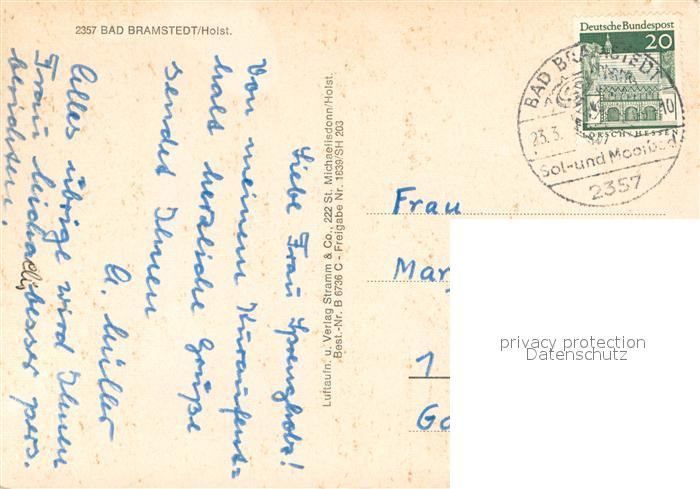 2357 BAD BRAMSTEDT/Holst.
Deutsche Bundespost
20
LORSCH/HESSEN
BAD BRAMSTEDT
23.3.
10
Sol- und Moorbad
2357
Liebe Frau
Von meinem Kuraufent-
halt herzliche Grüße
sendet Ihnen
A. Müller
Alles übrige wird Ihnen
Frau besser pers.
berichten.
Luftaufn. u. Verlag Stramm & Co., 222 St. Michaelisdonn/Holst.
Best.-Nr. B 6736 C - Freigabe Nr. 1639/SH 203
Frau
Mar
1
Go
privacy protection
Datenschutz